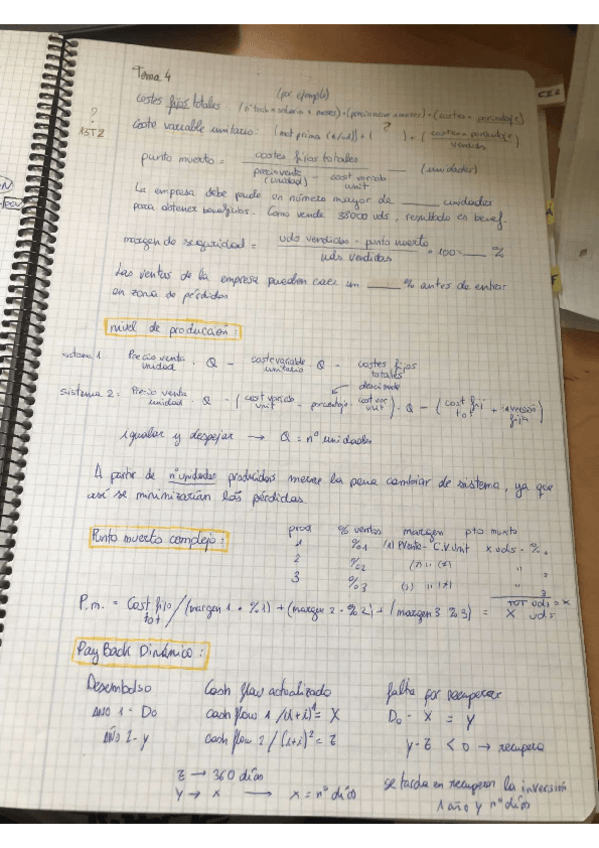 Tema 4
(por ejemplo)
costes fijos totales (nº trab × salario × meses) + (
? ?
15TZ Coste variable unitario: (mat prima (€/ud)) + ( ) + (costes × porcentaje / vendidas
punto muerto = costes fijos totales / precio venta (unidad) - cost variab unit (unidades)
La empresa debe un número mayor de ____ unidades
para obtener beneficios. Como vende 35000 uds, resultado es benef.
margen de seguridad = uds vendidas - punto muerto / uds vendidas × 100 = ____ %
Las ventas de la empresa pueden caer un ____ % antes de entrar
en zona de pérdidas
nivel de producción:
sistema 1 Precio venta unidad · Q - coste variable unitario · Q - costes fijos totales
descuento
sistema 2: Precio venta unidad · Q - (cost variab unit - porcentaje · cost var unit) · Q - (cost fij tot + inversión fija)
igualar y despejar → Q = nº unidades
A partir de nº unidades producidas merece la pena cambiar de sistema, ya que
así se minimizarían las pérdidas.
Punto muerto complejo:
prod % ventas margen pto muerto
1 %1 (1) P.Venta - C.V.Unit x uds · %1
2 %2 (2) " (2) " 2
3 %3 (3) " (3) " 3
TOT uds = x
P.m. = Cost fijo tot / (margen 1 · %1) + (margen 2 · %2) + (margen 3 %3) = X uds
Pay Back Dinámico:
Desembolso Cash flow actualizado falta por recuperar
Año 1 - Do cash flow 1 / (1+i)¹ = X Do - X = Y
Año 2 - y cash flow 2 / (1+i)² = Z y - Z < 0 → recupero
Z → 360 días
Y → x → x = nº días
se tarda en recuperar la inversión
1 año y nº días